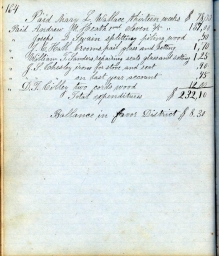 164
Paid Mary L. Wallace thirteen weeks $ 78.
Paid Andrew M. Heath eleven 107.
Joseph Swain splitting piling wood .90
Hall brooms pail glass and setting 1,10
William Sanders repairing seats glass and setting 1.25
J. P. Chesley irons for stove and seat .90
on last year account .95
D. K. two cords wood
Total expenditures $ 232,10
Ballance in favor District $ 8.30